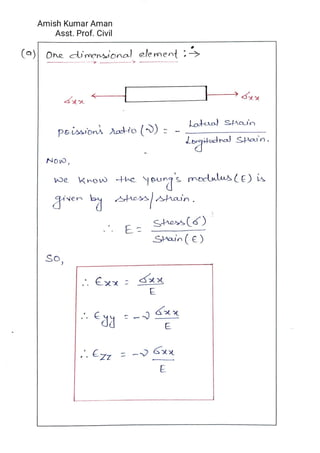 Amish Kumar Aman
Asst. Prof. Civil
(a) One dimensional element :→
σxx σxx
poission's ratio (ν) = - Lateral Strain / Longitudinal Strain.
Now,
we know the young's modulus (E) is
given by stress/strain.
∴ E = Stress(σ) / Strain(ε)
So,
∴ εxx = σxx / E
∴ εyy = -ν σxx / E
∴ εzz = -ν σxx / E